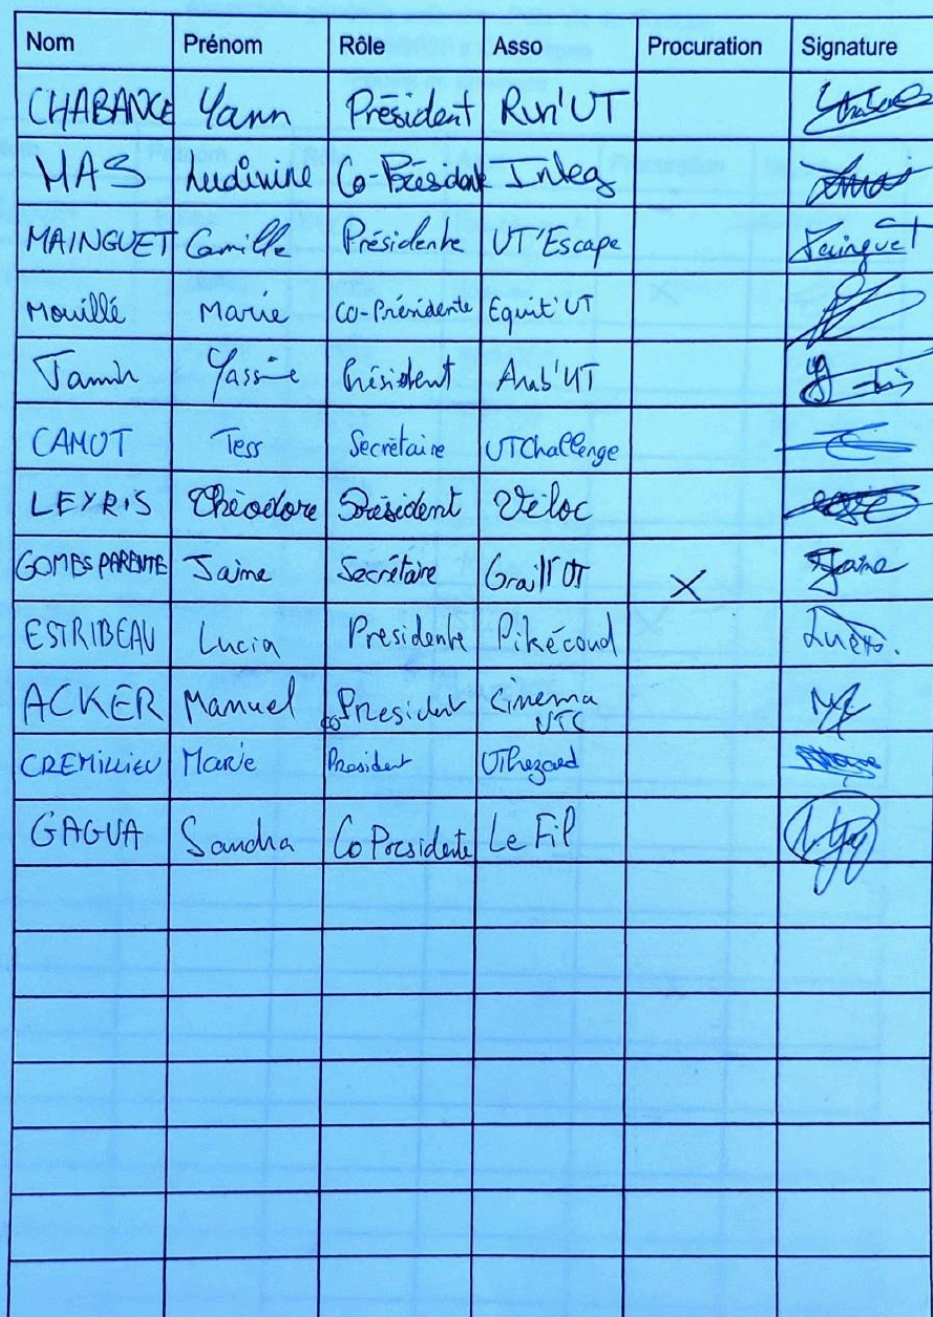 Nom Prénom Rôle Asso Procuration Signature
CHABANCE Yann Président Run'UT
MAS Ludivine Co-Présidente Integ
MAINGUET Camille Présidente UT'Escape Mainguet
Mouillé Marie Co-Présidente Equit'UT
Yassine Président Arab'UT
CAMUT Tess Secrétaire UTChallenge
LEYRIS Théodore Président Véloc
GOMES PARENTE Jaime Secrétaire Graill'UT X Jaime
ESTRIBEAU Lucia Presidente Pikécoud Lucia.
ACKER Manuel co President Cinema
UTC
CREMILLIEU Marie President UThezard
GAGUA Sandra Co Presidente Le Fil